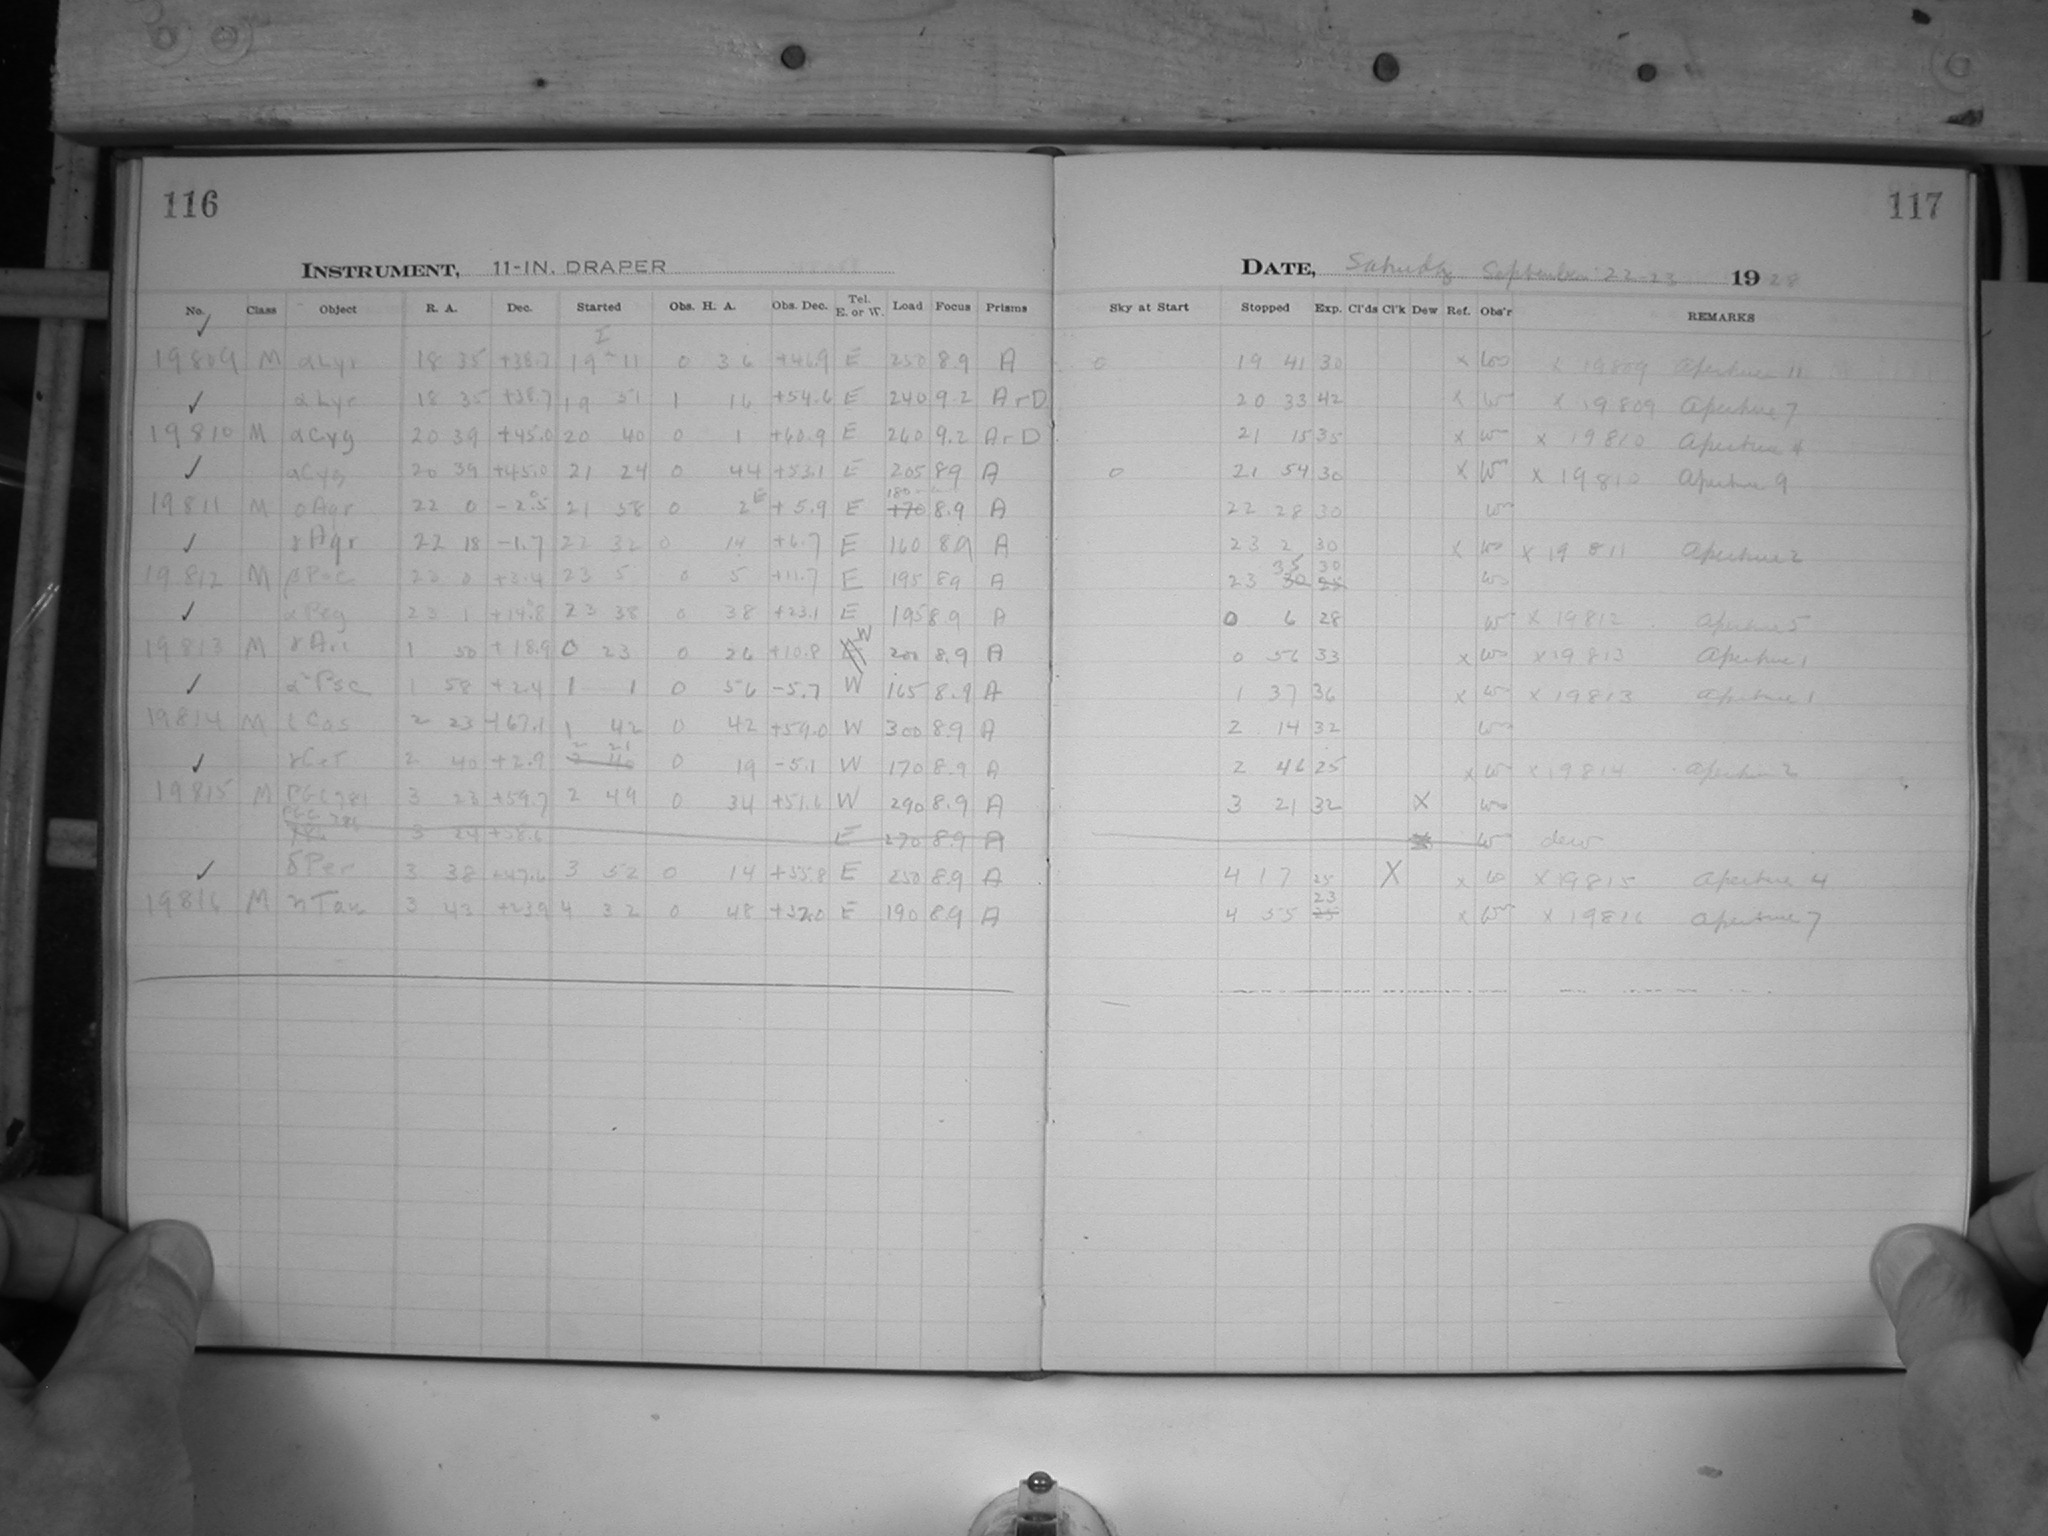 116
INSTRUMENT, 11-IN. DRAPER
No. Class Object R. A. Dec. Started Obs. H. A. Obs. Dec. Tel. E. or W. Load Focus Prisms
✓ I
19809 M α Lyr 18 35 +38.7 19 11 0 36 +46.9 E 250 8.9 A
✓ α Lyr 18 35 +38.7 19 51 1 16 +54.6 E 240 9.2 A r D
19810 M α Cyg 20 39 +45.0 20 40 0 1 +60.9 E 260 9.2 A r D
✓ α Cyg 20 39 +45.0 21 24 0 44 +53.1 E 205 8.9 A
19811 M o Aqr 22 0 -2.5 21 58 0 2 E +5.9 E 180 170 8.9 A
✓ γ Aqr 22 18 -1.7 22 32 0 14 +6.7 E 160 8.9 A
19812 M β Psc 23 0 +3.4 23 5 0 5 +11.7 E 195 8.9 A
✓ α Peg 23 1 +14.8 23 38 0 38 +23.1 E 195 8.9 A
19813 M γ Ari 1 50 +18.9 0 23 0 26 +10.8 W 200 8.9 A
✓ α Psc 1 58 +2.4 1 1 0 56 -5.7 W 165 8.9 A
19814 M ι Cas 2 23 +67.1 1 42 0 42 +59.0 W 300 8.9 A
✓ γ Cet 2 40 +2.9 2 21 0 19 -5.1 W 170 8.9 A
19815 M PGC 781 3 23 +59.7 2 49 0 34 +51.6 W 290 8.9 A
PGC 786 3 24 +58.6 E 270 8.9 A
✓ δ Per 3 38 +47.6 3 52 0 14 +55.8 E 250 8.9 A
19816 M η Tau 3 42 +23.9 4 32 0 48 +32.0 E 190 8.9 A
117
DATE, Saturday September 22-23 1928
Sky at Start Stopped Exp. Cl'ds Cl'k Dew Ref. Obs'r REMARKS
0 19 41 30 x x 19809 Aperture 11
20 33 42 x x 19809 Aperture 7
21 15 35 x x 19810 Aperture 4
0 21 54 30 x x 19810 Aperture 9
22 28 30
23 2 30 x x 19811 Aperture 2
23 35 30 30 25
0 6 28 x 19812 Aperture 5
0 56 33 x x 19813 Aperture 1
1 37 36 x x 19813 Aperture 1
2 14 32
2 46 25 x x 19814 Aperture 2
3 21 32 X
dew
4 17 25 X x x 19815 Aperture 4
4 55 23 25 x x 19816 Aperture 7